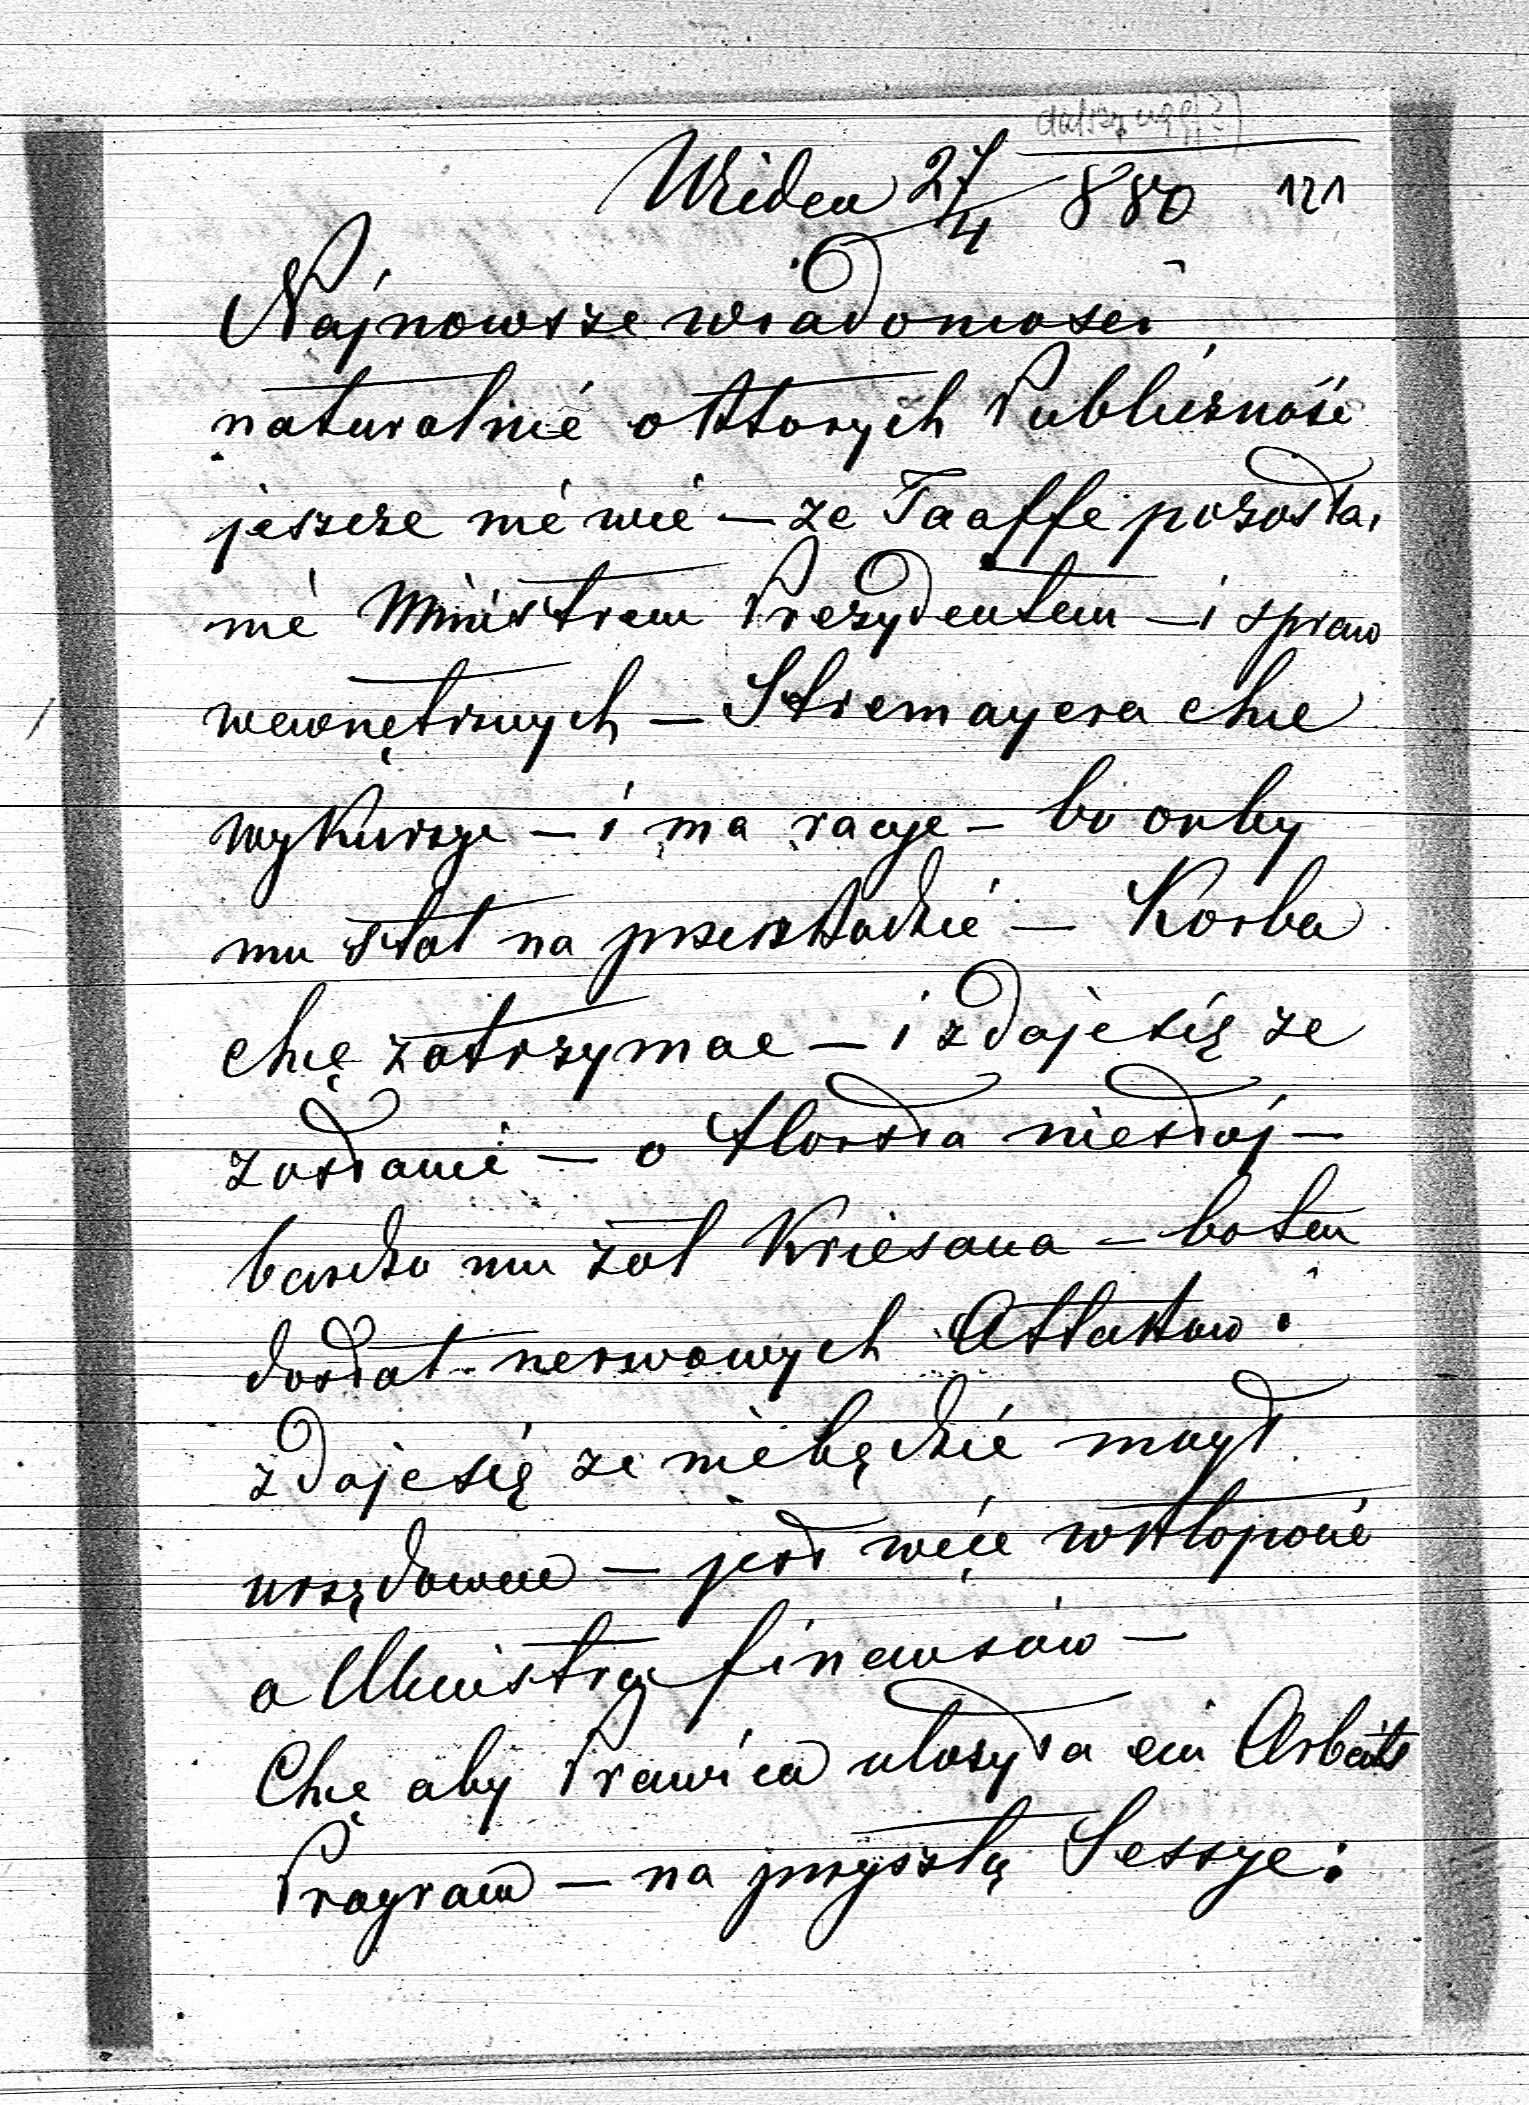 dalszy ciąg (?)
Wideń 27/4 880 121
Najnowsze wiadomości
naturalnie o ktorych Publiczność
jeszcze nie wie — ze Taaffe pozosta,
nie Ministrem Prezydentem — i spraw
wewnętrznych — Stremayera chce
wykurzyć — i ma racye — bo onby
mu stał na przeszkodzie — Korba
chcę zatrzymac — i zdaje się ze
zostanie — o Horsta niestoj —
bardzo mu żal Kriesaua — bo ten
dostał nerwowych Attakow i
zdaje się ze nie będzie mógł
urzędowac — jest więc w kłopocie
o Ministra finansów —
Chcę aby Prawica ułożyła ein Arbeits
Program — na przyszłą Sessye: